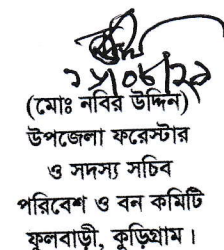 (মোঃ নবির উদ্দিন)
উপজেলা ফরেস্টার
ও সদস্য সচিব
পরিবেশ ও বন কমিটি
ফুলবাড়ী, কুড়িগ্রাম।